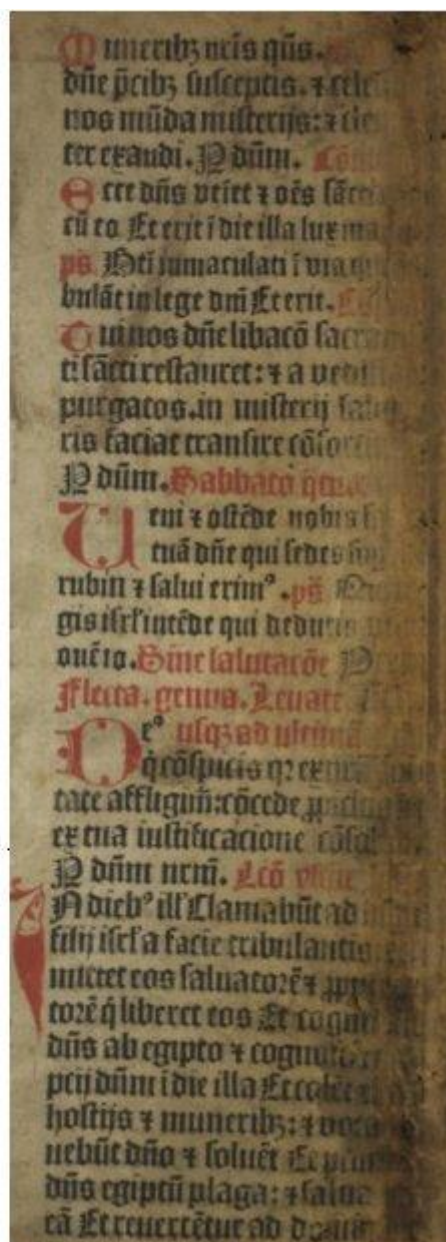 Muneribꝫ nr̄is qs̄. ps
dn̄e p̄cibꝫ susceptis. ⁊ cele
nos mūda misterijs: ⁊ cle
ter exaudi. P dūm. Cōm
Ecce dn̄s veīet ⁊ oēs sāct
cū eo Et erit ī die illa lux ma
ps Bti immaculati ī via qui
bulāt in lege dn̄i Et erit. Co
Tui nos dn̄e libacō sacra
ti sācti restauret: ⁊ a vetu
purgatos. in misterij salu
ris faciat transire cōsor
P dūm. Sabbato qtuo
Veni ⁊ ostēde nobis f
tuā dn̄e qui sedes sup
rubin ⁊ salui erimꝰ. ps Qui
gis isrł intēde qui deducis
ouē io. Sine salutacōe
Flecta. genua. Leuate
Deꝰ usqꝫ ad ultimā
q̇ cōspicis qꝛ ex nr̄a
tate affligim̄: cōcede ꝓpiciꝰ
ex tua iustificacione cōsol
P dūm nrm̄. Lcō ysaie
In diebꝰ ill̄ Clamabūt ad
filij isrł a facie tribulantis
mittet eos saluatorē ⁊ ꝓpug
torē q̇ liberet eos Et cogn
dn̄s ab egipto ⁊ cognosc
pcij dūm ī die illa Et colēt
hostijs ⁊ muneribꝫ: ⁊ vota
uebūt dn̄o ⁊ soluēt Et percu
dn̄s egiptū plaga: ⁊ salua
eā Et reuertētur ad dn̄m